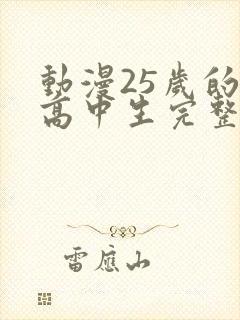 動漫25歲的
高中生完整
雷應山